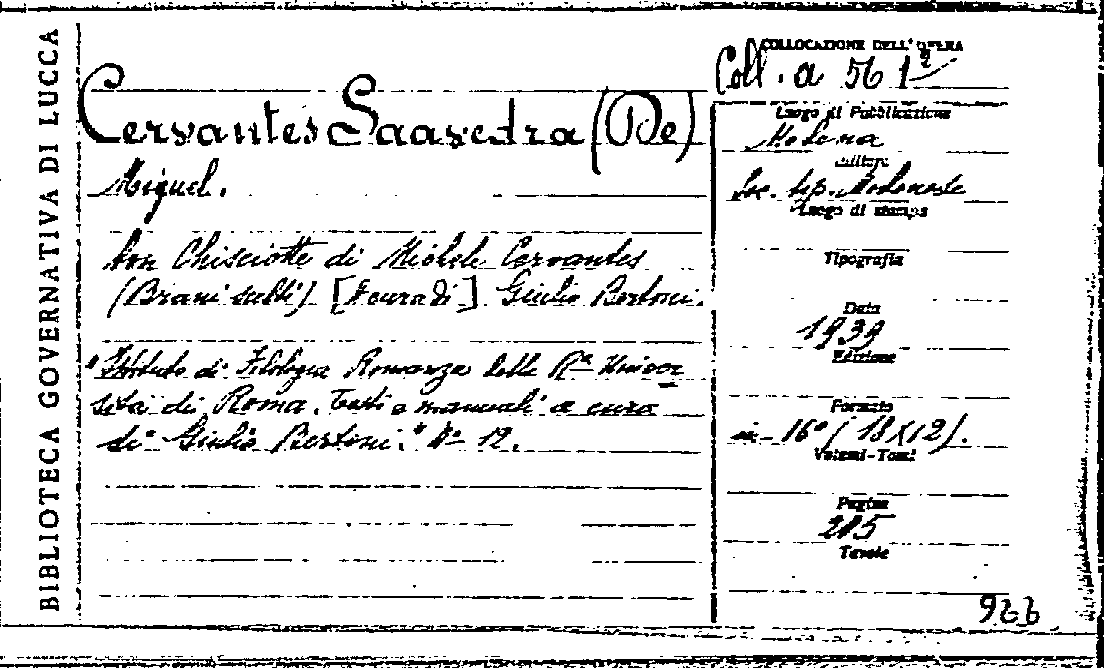 BIBLIOTECA GOVERNATIVA DI LUCCA
Cervantes Saavedra (De)
Miguel.
Don Chisciotte di Michele Cervantes
(Brani scelti) [A cura di] Giulio Bertoni.
"Istituto di Filologia Romanza della R.a Univer
sità di Roma. Testi e manuali a cura
di Giulio Bertoni." N° 12.
COLLOCAZIONE DELL'OPERA
Coll. a 561
Luogo di Pubblicazione
Modena
Editore
Soc. tip. Modenese
Luogo di stampa
Tipografia
Data
1939
Edizione
Formato
in-16° (18x12).
Volumi-Tomi
Pagine
215
Tavole